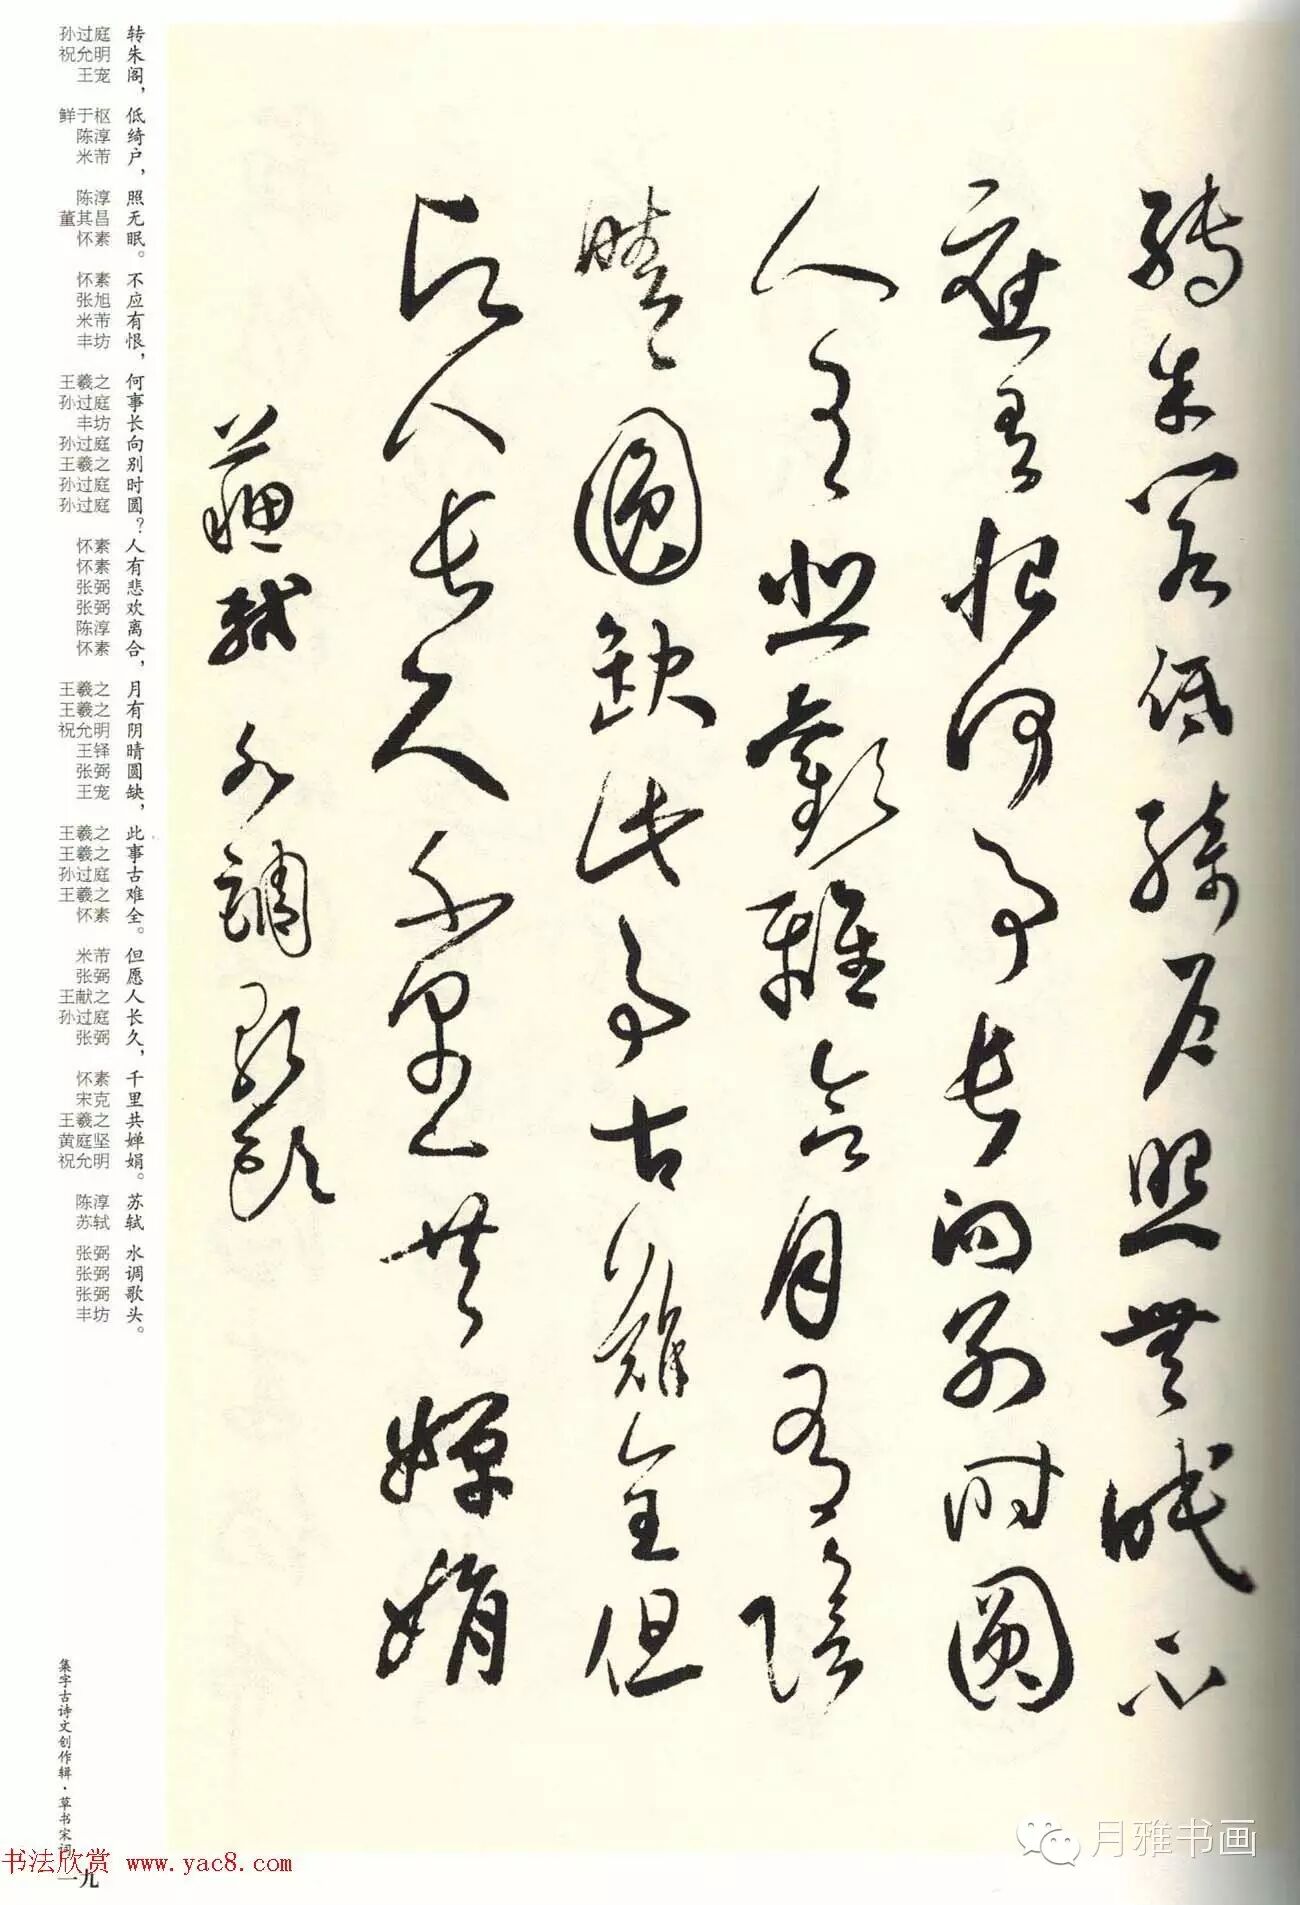 轉朱閣低綺户照無眠不
應有恨何事長向别時圓
人有悲歡離合月有陰
晴圓缺此事古難全但
願人長久千里共嬋娟
蘇軾水調歌頭
转朱阁，低绮户，照无眠。不应有恨，何事长向别时圆？人有悲欢离合，月有阴晴圆缺，此事古难全。但愿人长久，千里共婵娟。苏轼 水调歌头。
孙过庭
祝允明
王宠
鲜于枢
陈淳
米芾
陈淳
董其昌
怀素
怀素
张旭
米芾
丰坊
王羲之
孙过庭
丰坊
孙过庭
王羲之
孙过庭
孙过庭
怀素
怀素
张弼
张弼
陈淳
怀素
王羲之
王羲之
祝允明
王铎
张弼
王宠
王羲之
王羲之
孙过庭
王羲之
怀素
米芾
张弼
王献之
孙过庭
张弼
怀素
宋克
王羲之
黄庭坚
祝允明
陈淳
苏轼
张弼
张弼
张弼
丰坊
集字古诗文创作辑·草书宋词
一九
书法欣赏 www.yac8.com
月雅书画